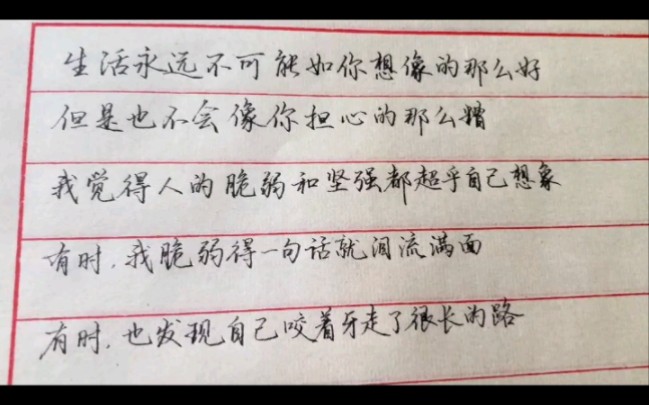 生活永远不可能如你想像的那么好
但是也不会像你担心的那么糟
我觉得人的脆弱和坚强都超乎自己想象
有时,我脆弱得一句话就泪流满面
有时,也发现自己咬着牙走了很长的路